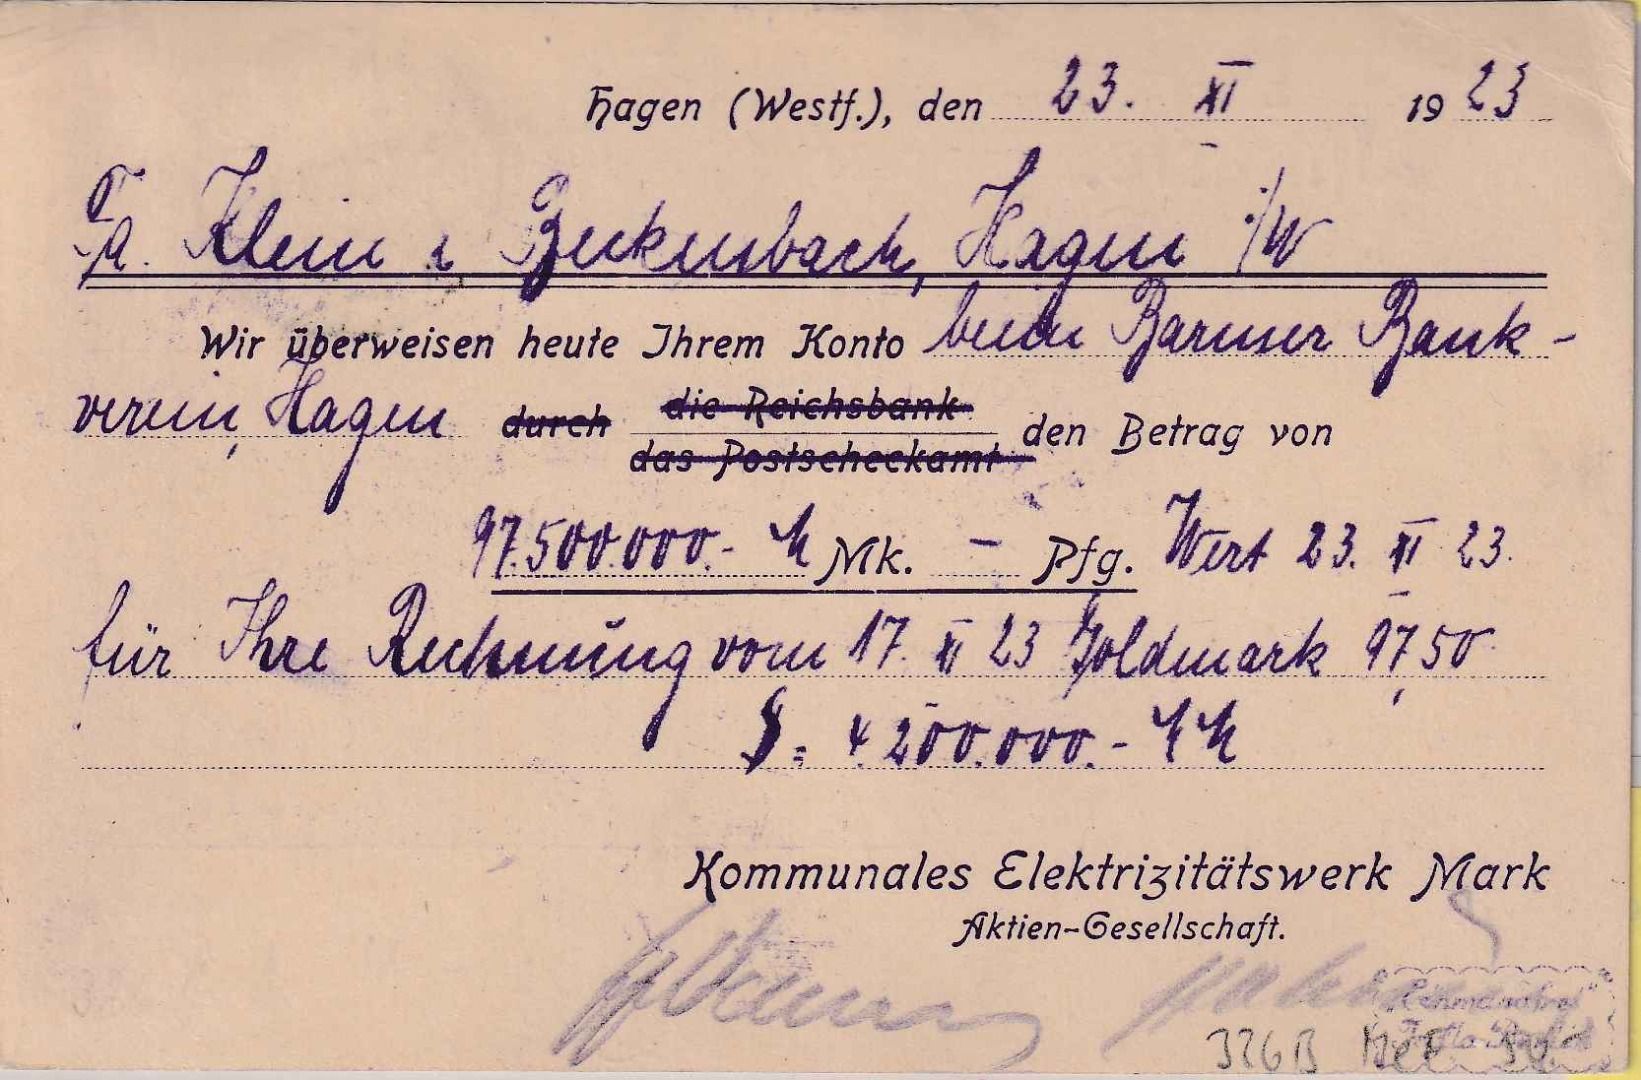 Hagen (Westf.), den 23. XI 1923
Fa. Klein & Beckenbach, Hagen i/W
Wir überweisen heute Ihrem Konto beim Barmer Bank-
verein, Hagen durch die Reichsbank
das Postscheckamt den Betrag von
97.500.000.- M Mk. - Pfg. Wert 23. XI 23.
für Ihre Rechnung vom 17. XI 23 Goldmark 97,50
$ = 4.200.000.-
Kommunales Elektrizitätswerk Mark
Aktien-Gesellschaft.
326B